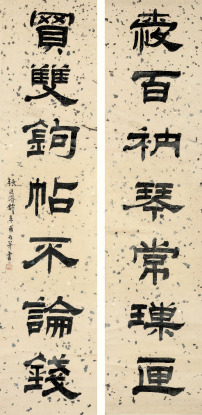 愛百衲琴常璅匣
買雙鉤帖不論錢